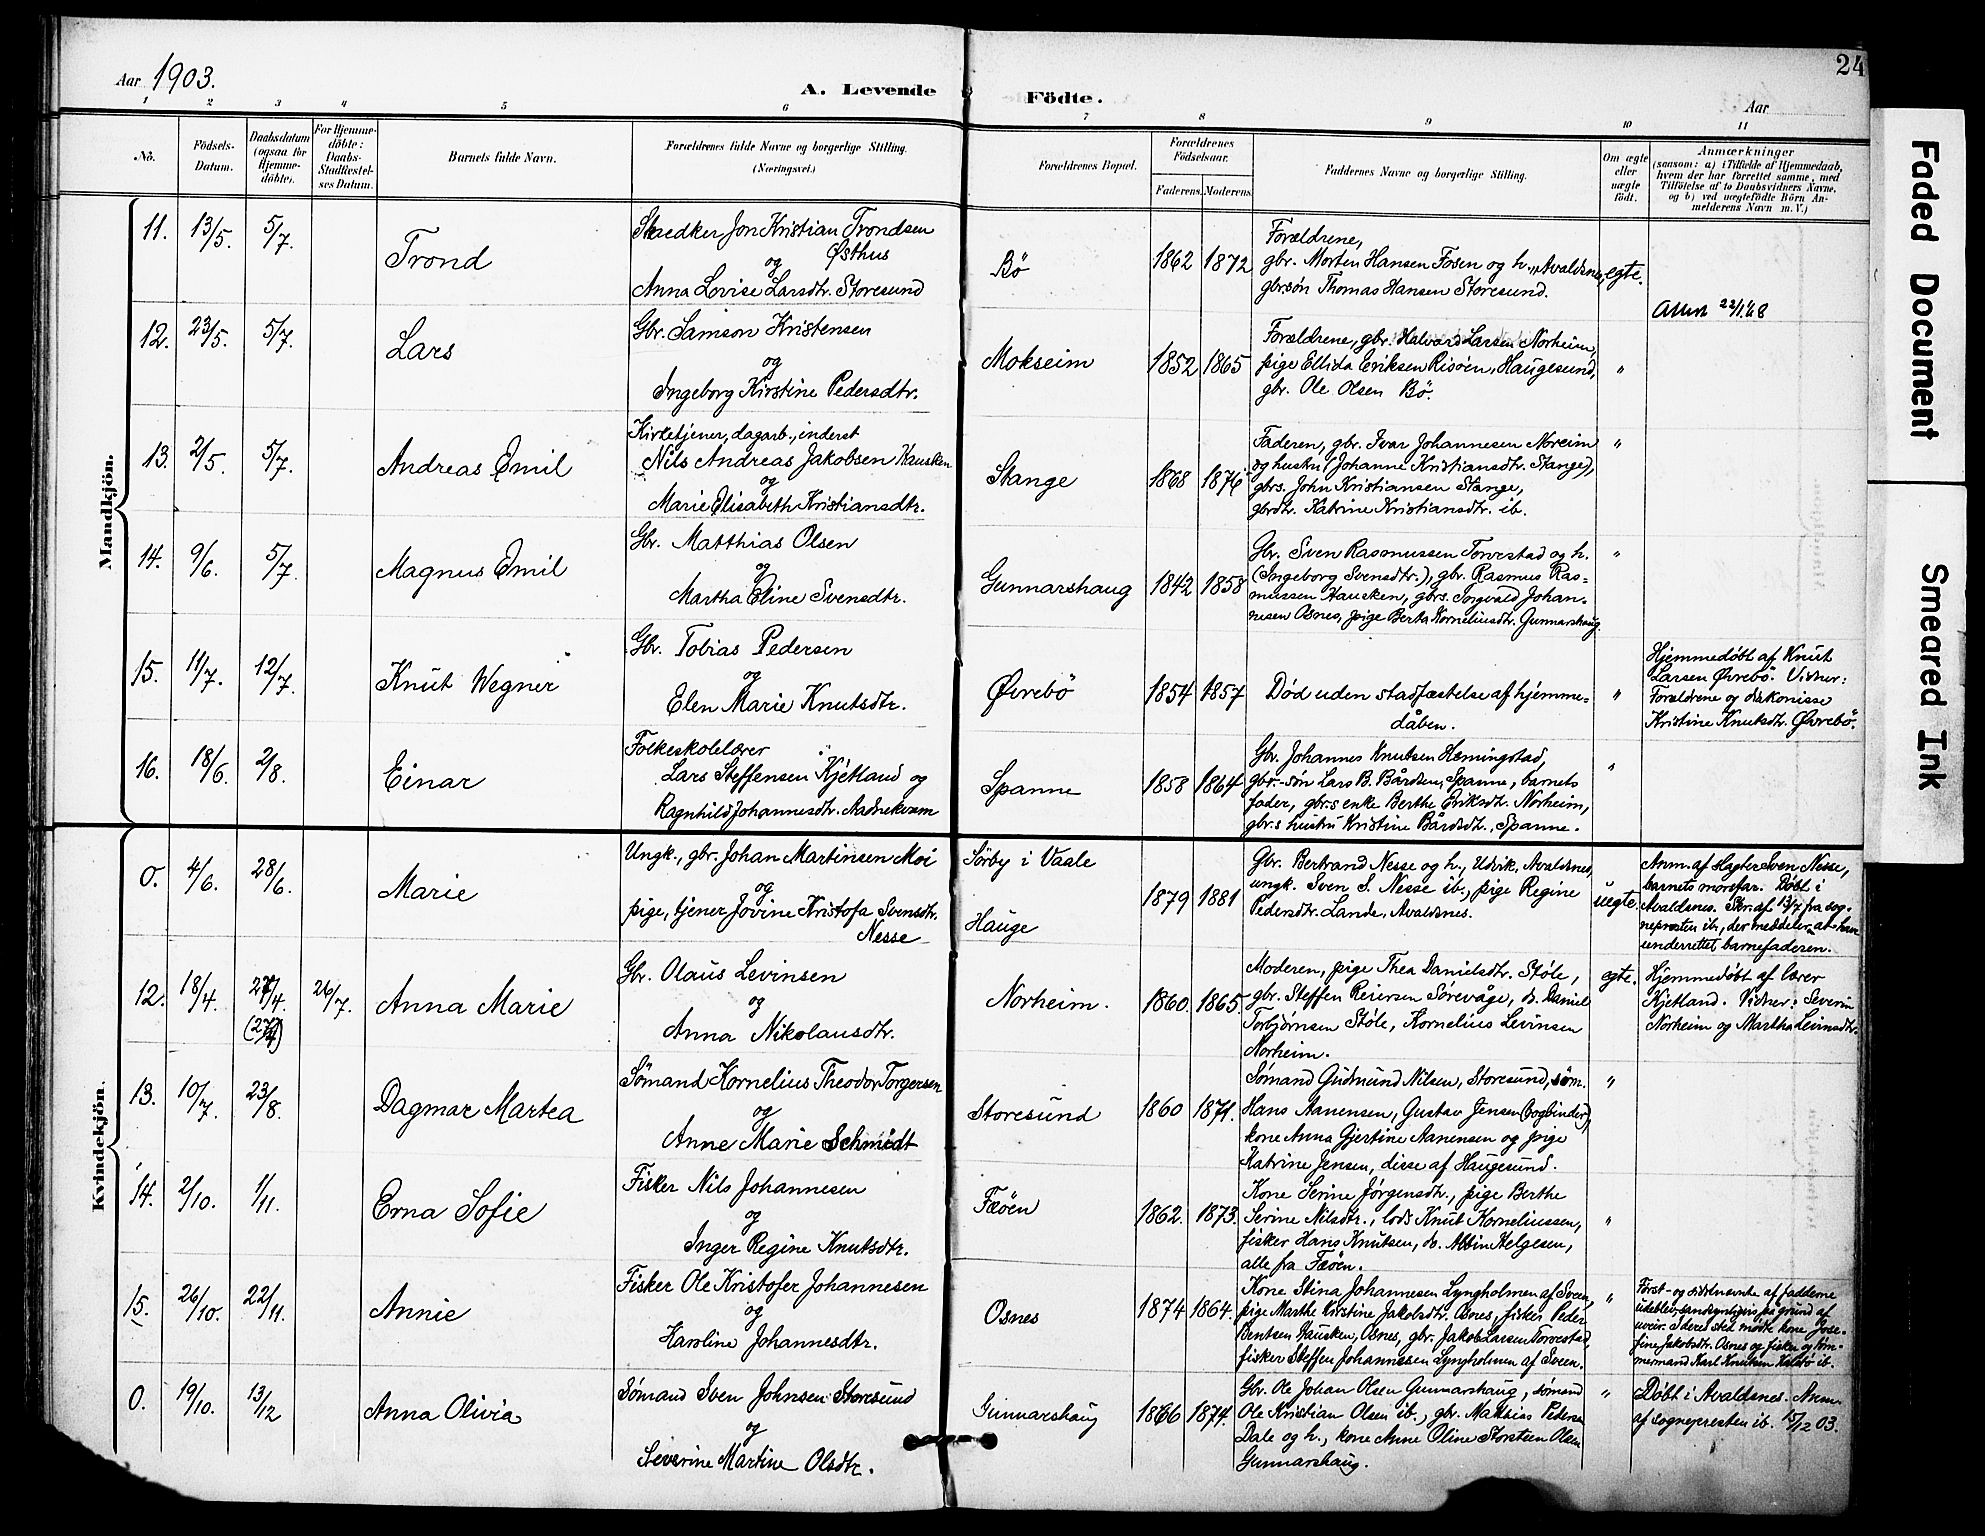 Aar 1903.
A. Levende Födte.
Aar
24
1 2 3 4 5 6 7 8 9 10 11
No.
Födsels-
Datum.
Daabsdatum
(ogsaa for
Hjemme-
döbte).
For Hjemme-
döbte:
Daabs-
Stadfæstel-
ses Datum.
Barnets fulde Navn.
Forældrenes fulde Navne og borgerlige Stilling.
(Næringsvei.)
Forældrenes Bopæl.
Forældrenes
Födselsaar.
Faderens. Moderens.
Faddernes Navne og borgerlige Stilling.
Om ægte
eller
uægte
födt.
Anmærkninger
(saasom: a) i Tilfælde af Hjemmedaab,
hvem der har forrettet samme, med
Tilföielse af to Daabsvidners Navne,
og b) ved uægtefödte Börn An-
melderens Navn m. V.)
Mandkjön.
11. 13/5. 5/7. Trond
Skrædker Jon Kristian Trondsen
Østhus
og
Anna Lovise Larsdtr. Storesund
Bö 1862 1872
Forældrene,
gbr. Morten Hansen Fosen og h., Avaldsnes,
gbrsön Thomas Hansen Storesund.
egte.
12. 23/5. 5/7. Lars
Gbr. Samson Kristensen
og
Ingeborg Kirstine Pedersdtr.
Mokseim 1852 1865
Forældrene, gbr. Halvard Larsen Norheim,
pige Ellida Eriksen Risöen, Haugesund,
gbr. Ole Olsen Bö.
"
13. 2/5. 5/7. Andreas Emil
Kirketjener, dagarb., inderst
Nils Andreas Jakobsen Hausken
og
Marie Elisabeth Kristiansdtr.
Stange 1868 1876
Faderen, gbr. Ivar Johannesen Noreim
og hustru (Johanne Kristiansdtr. Stange),
gbrs. John Kristiansen Stange,
gbrdtr. Katrine Kristiansdtr. ib.
"
14. 9/6. 5/7. Magnus Emil
Gbr. Matthias Olsen
og
Martha Eline Svensdtr.
Gunnarshaug 1842 1858
Gbr. Sven Rasmussen Torvestad og h.
(Ingeborg Svensdtr.), gbr. Rasmus Ras=
mussen Haucken, gbrs. Torgvald Johan=
nesen Osnes, pige Berta Kornelisdtr. Gunnarshaug.
"
15. 11/7. 12/7. Knut Wegner
Gbr. Tobias Pedersen
og
Elen Marie Knutsdtr.
Øvrebö 1854 1857
Död uden stadfæstelse af hjemme=
dåben.
"
Hjemmedöbt af Knut
Larsen Øvrebö. Vidner:
Forældrene og diakonisse
Kristine Knutsdtr. Øvrebö.
16. 18/6. 2/8. Einar
Folkeskolelærer
Lars Steffensen Kjetland og
Ragnhild Johannesdtr. Aadnekvam
Spanne 1858 1864
Gbr. Johannes Knutsen Hemingstad,
gbr.-sön Lars B. Bårdsen, Spanne, barnets
fader, gbr:s enke Berthe Eriksdtr. Norheim,
gbr.s hustru Kristine Bårdsdtr., Spanne.
"
Kvindekjön.
0. 4/6. 28/6. Marie
Ungk., gbr. Johan Martinsen Moi
og
pige, tjener Jovine Kristofa Svensdtr.
Nesse
Sörby i Vaale
Hauge
1879 1881
Gbr. Bertrand Nesse og h., Udvik, Avaldsnes,
ungk. Sven S. Nesse ib., pige Regine
Pedersdtr. Lande, Avaldsnes.
uegte.
Anm. af Hagter Sven Nesse,
barnets morsfar. Döbt i
Avaldsnes. Skr. af 13/7 fra sog-
nepresten ib., der meddeler, at han
underrettet barnefaderen.
12. 18/4. 27/4. 26/7. Anna Marie
Gbr. Olaus Levinsen
og
Anna Nikolausdtr.
Norheim. 1860. 1865.
Moderen, pige Thea Danielsdtr. Stöle,
gbr. Steffen Reiersen Sörevåge, do. Daniel
Torbjörnsen Stöle, Kornelius Levinsen
Norheim.
egte.
Hjemmedöbt af lærer
Kjetland. Vidner: Severin
Norheim og Martha Levinsdtr.
13. 10/7. 23/8. Dagmar Martea
Sömand Kornelius Theodor Torgersen
og
Anne Marie Schmidt
Storesund 1860 1871.
Sömand Gudmund Nilsen, Storesund, söm.
Hans Aanensen, Gustav Jensen (bogbinder),
kone Anna Gjertine Aanensen og pige
Katrine Jensen, disse af Haugesund.
"
14. 2/10. 1/11. Erna Sofie
Fisker Nils Johannesen
og
Inger Regine Knutsdtr.
Fæöen 1862. 1873.
Kone Serine Jörgensdtr., pige Berthe
Serine Nilsdtr., lods Knut Korneliussen,
fisker Hans Knutsen, do. Albin Helgesen,
alle fra Fæöen.
"
15. 26/10. 22/11. Annie
Fisker Ole Kristofer Johannesen
og
Karoline Johannesdtr.
Osnes 1874 1864.
Kone Stina Johannesen Lyngholmen af Sveen,
pige Marthe Kirstine Jakobsdtr. Osnes, fisker Peder
Bentsen Hausken, Osnes, gbr. Jakob Larsen Torvestad,
fisker Steffen Johannesen Lyngholmen af Sveen.
"
Först- og sidstnævnte af fadderne
udeblev, sandsynligvis på grund af
uveir. I deres sted mödte kone Jose-
fine Jakobsdtr. Osnes og fisker og töm-
mermand Karl Knutsen ib.
0. 19/10. 13/12 Anna Olivia
Sömand Sven Johnsen Storesund
og
Severine Martine Olsdtr.
Gunnarshaug 1866 1874.
Gbr. Ole Johan Olsen Gunnarshaug, sömand
Ole Kristian Olsen ib., gbr. Matthias Pedersen
Dale og h., kone Anne Oline Storsteen Olsen
Gunnarshaug.
"
Döbt i Avaldsnes. Anm.
af sognepresten ib. 15/12 03.
Faded Document
Smeared Ink